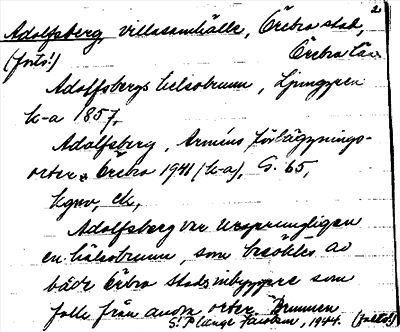 2
Adolfsberg, villasamhälle, Örebro stad,
(forts!) Örebro län
Adolfsbergs helsobrunn, Ljunggren
k-a 1857,
Adolfsberg, Arméns förläggnings-
orter, Örebro 1941 (k-a), G. 65,
Kgnv, ek,
Adolfsberg var ursprungligen
en hälsobrunn, som besöktes av
både Örebro stads inbyggare som
folk från andra orter. Brunnen
S: P Lange, 1944. (forts!)